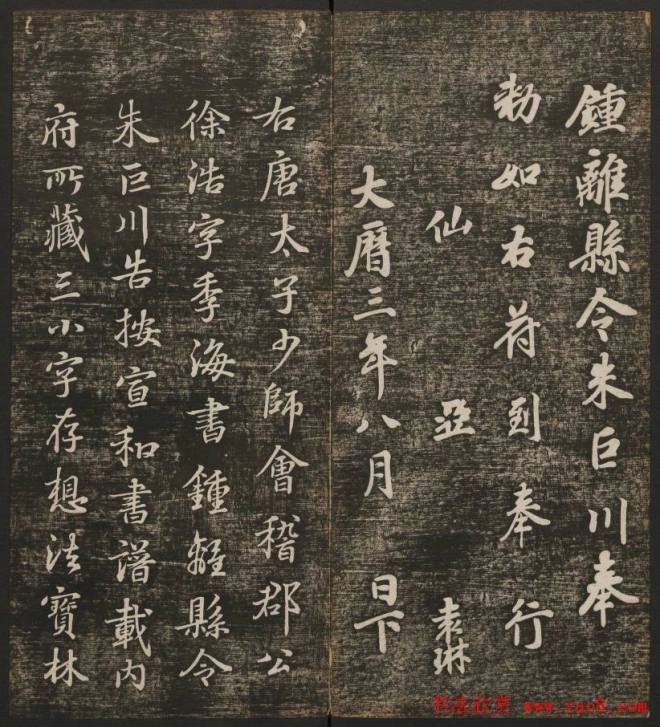 鍾離縣令朱巨川奉
勑如右符到奉行
仙 亞 袁琳
大曆三年八月 日下
右唐太子少師會稽郡公
徐浩字季海書鍾離縣令
朱巨川告按宣和書譜載內
府所藏三小字存想法寶林
书法欣赏 www.yac8.com